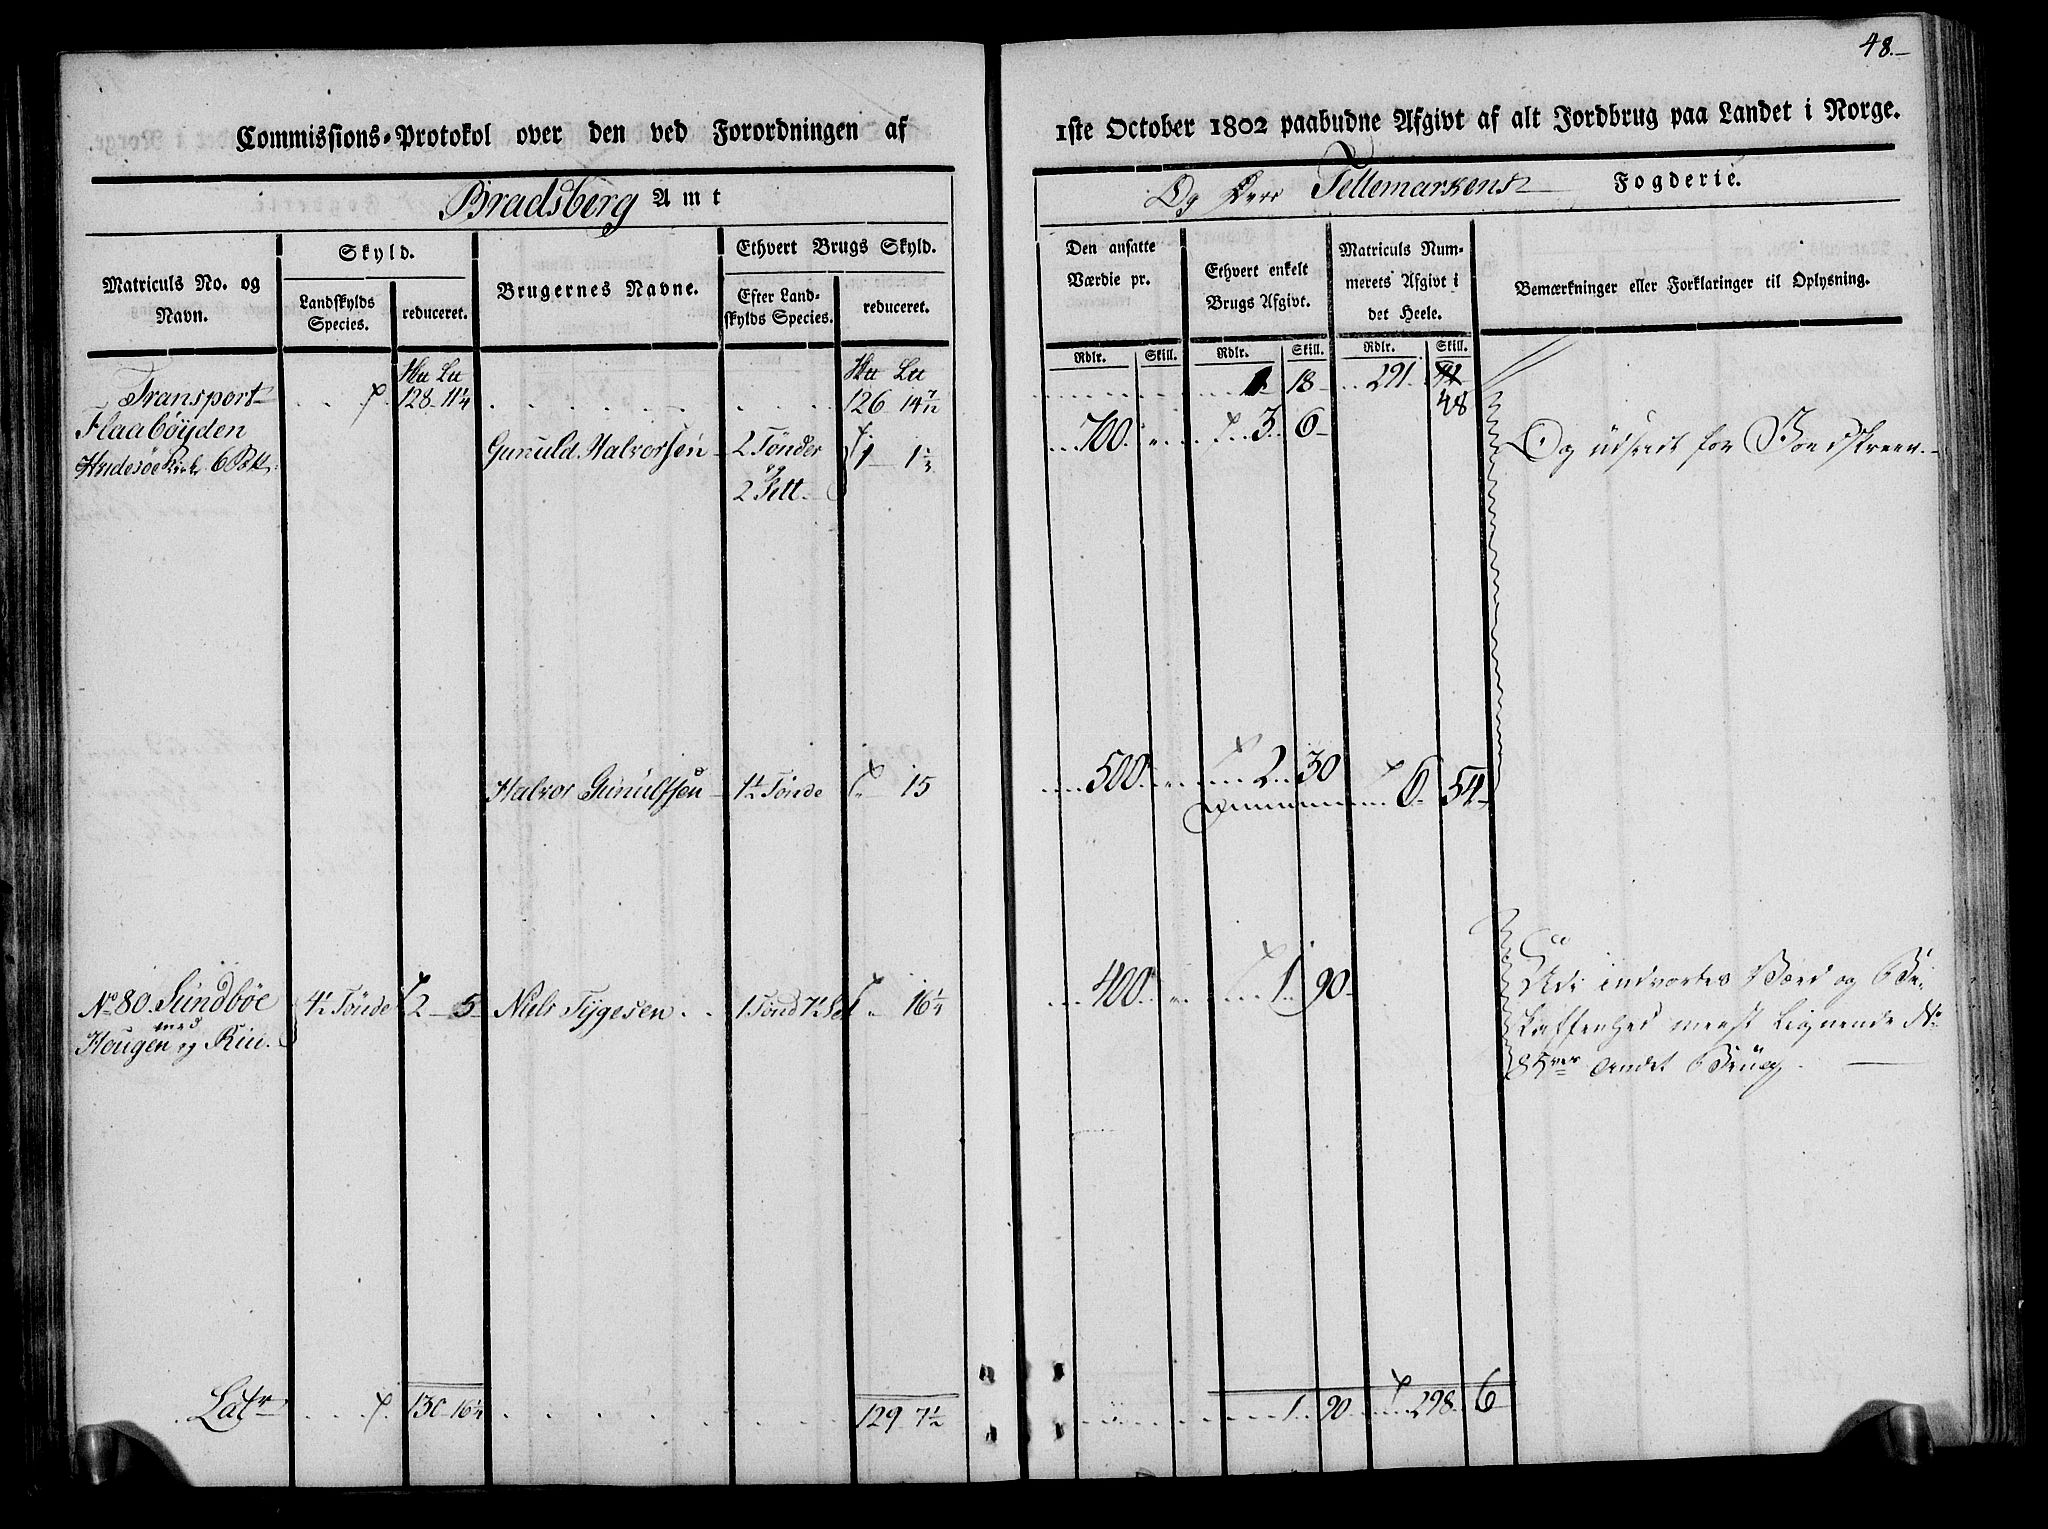 48.
Commissions-Protokol over den ved Forordningen af 1ste October 1802 paabudne Afgivt af alt Jordbrug paa Landet i Norge.
Bradsberg Amt
Og Tellemarkens Fogderie.
Matriculs No. og Navn.
Skyld.
Landskylds Species.
reduceret.
Brugernes Navne.
Ethvert Brugs Skyld.
Efter Landskylds Species.
reduceret.
Den ansatte Værdie pr.
Ethvert enkelt Brugs Afgivt.
Matriculs Nummerets Afgivt i det Heele.
Bemærkninger eller Forklaringer til Oplysning.
Rdlr. Skill. Rdlr. Skill. Rdlr. Skill.
Transport 128 11¼ 126 14 7/12 1 18 291 48
Flaabøyden
6 Gunuld Halvorsen 2 Tønder 1 1½ 700 3 6 Og udsædt for
og
2 Sett
Halvor Gunulfsen 1½ Tønde 15 500 2 30 6 54
No 80. Sundbøe 4½ Tønde 2 5 Niels Tygesen 1 Tønd 16¼ 400 1 90
med
Hougen og Rui.
I indvortes Værd og Be-
skaffenhed meest lignende No
85 andet Brug.
Latr 130 16¼ 129 7½ 1 90 298 6